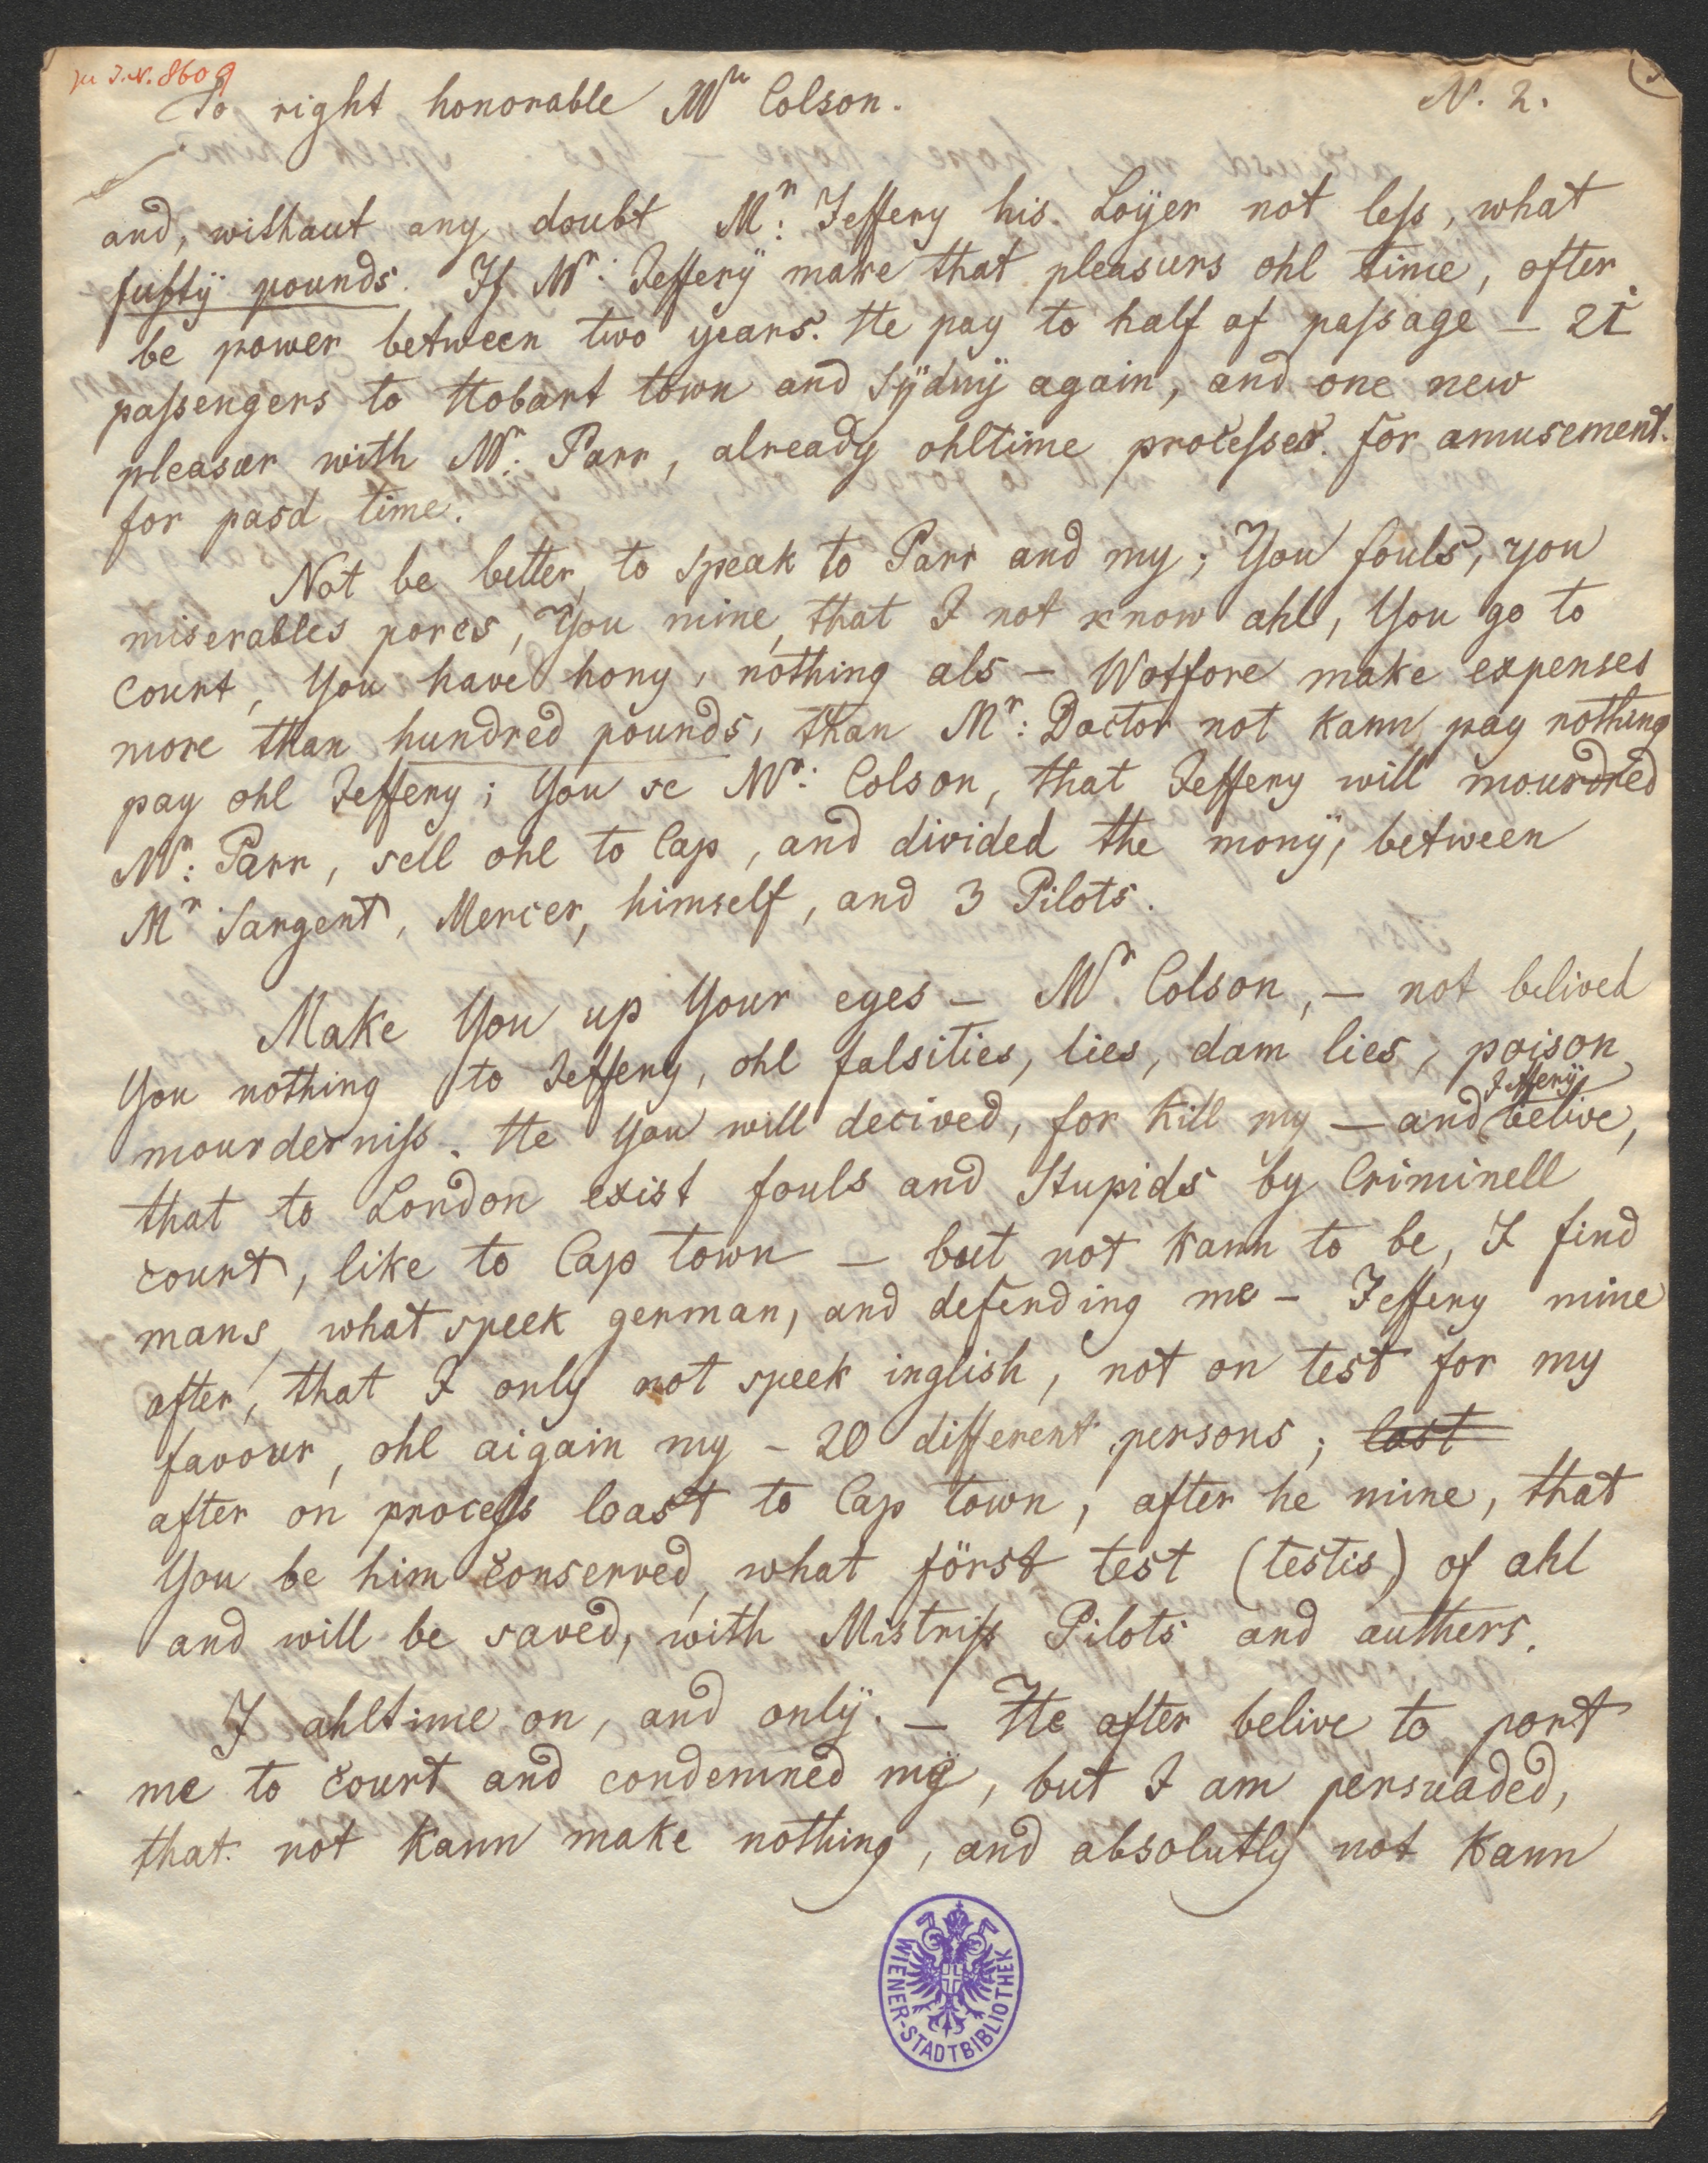 zu I.N. 8609
To right honorable Mr Colson.
N. 2.
and, without any doubt Mr: Jeffery his Loÿer not less, what
fufty pounds. If Mr: Jefferÿ make that pleasurs ohl time, after
be power between two years. He pay to half of passage – 21
passengers to Hobart town and Sÿdnÿ again, and one new
pleasur with Mr: Parr, already ohltime processes. for amusement.
for pasd time.
Not be better, to speak to Parr and my; You fouls, you
miserables porcs, You mine, that I not know ahl, You go to
court, You have hony, nothing als – Wotfore make expenses
more than hundred pounds, than Mr: Doctor not kann pay nothing
pay ohl Jeffery; You se Mr: Colson, that Jeffery will mourdred
Mr: Parr, sell ohl to Cap, and divided the monÿ, between
Mr Sargent, Mercer, himself, and 3 Pilots.
Make You up Your eyes – Mr Colson, – not belived
You nothing to Jeffery, ohl falsities, lies, dam lies, poison
Jefferÿ
mourderniss. He You will decived, for kill my – and belive,
that to London exist fouls and Stupids by Criminell
court, like to Cap town – but not kann to be, I find
mans, what speek german, and defending me – Jeffery mine
after, that I only not speek inglish, not on test for my
favour, ohl aigain my – 20 different persons; last
after on process loast to Cap town, after he mine, that
You be him conserved, what först test (testis) of ahl
and will be saved, with Mistriss Pilots and authers.
I ahltime on, and onlÿ. – He after belive to port
me to court and condemned my, but I am persuaded,
that not kann make nothing, and absolutly not kann
WIENER-STADTBIBLIOTHEK